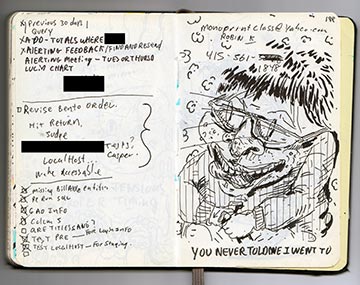 previous 30 days
Query
ADD - TOTALS WHERE
ALERTING FEEDBACK/FIND AND RESEND
ALERTING MEETING - TUES OR THURS
LUCID CHART
Revise Bento order.
Hit RETURN,
Judge
TESTS?
Casper
LocalHost...
make accessable
Missing billable entities
GAD INFO
Colors
ARE TITLES SAND?
TEST PRE — For login info
TEST LOCALHOST — For Staging.
188
monoprintclass@yahoo.com
ROBIN K
415-561-
1878
YOU NEVER TOLD ME I WENT TO